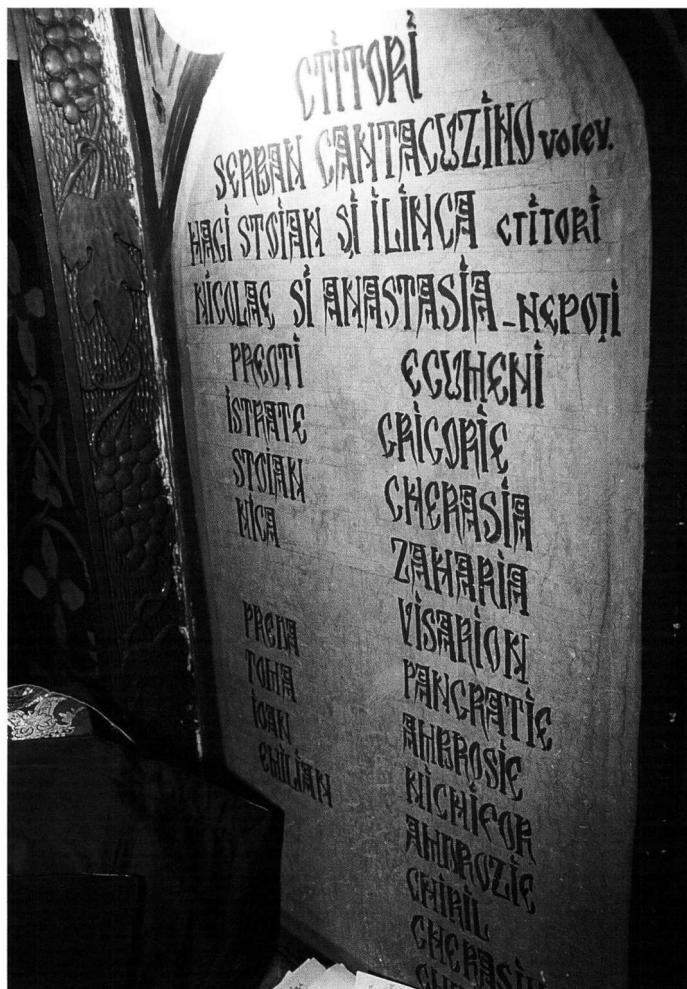 CTITORI
SERBAN CANTACUZINO VOIEV.
HAGI STOIAN ȘI ILINCA CTITORI
NICOLAE ȘI ANASTASIA - NEPOȚI
PREOTI
ISTRATE
STOIAN
NICA
PREDA
TOMA
IOAN
EMILIAN
ECUMENI
GRIGORIE
GHERASIA
ZAHARIA
VISARION
PANCRATIE
AMBROSIE
NICHIFOR
AMBROZIE
CHIRIL